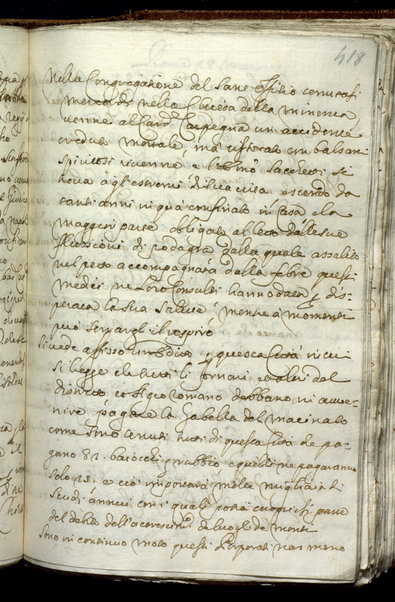 418
Nella Congregatione del Sant'Offitio tenutasi
mercordì nella Chiesa della Minerva
venne al Card. Carpegna un accidente
creduto mortale, ma ristorato con balsami
spiritosi rivenne, e l'Em.o Sacchetti si
trova agl'estremi di sua vita essendo da
tanti anni in qua confinato in Casa e la
maggior parte obligato al letto dalle sue
flussioni di podagra dalla quale assalito
nel petto accompagnata dalla febre questi
Medici ne loro Consulti hanno data p dis-
perata la sua salute, mentre à momenti
può serrargl'il respiro
Si vede affisso un Editto p questa Città in cui
si legge che tutti li fornari et altri del
distretto et Agro Romano debbano in avve-
nire pagare la Gabella del Macinato
come sono tenuti tutti di questa Città da pa-
gano 82. baiocchi p rubbio e quelli ne pagavano
solo 28. e ciò importarà molte migliaia di
Scudi annui con i quali
del debito dell' de luoghi de Monti
Sono in continuo moto questi Porporati non meno